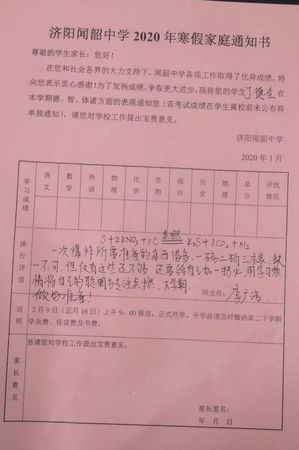 济阳闻韶中学 2020 年寒假家庭通知书
尊敬的学生家长:您好!
在您和社会各界的大力支持下,闻韶中学各项工作取得了优异成绩,特
向您表示衷心感谢!为了发扬成绩,争取更大进步,现将您的学生
在本学期德、智、体诸方面的表现通知您(若考试成绩在学生离校前未公布将
单独通知)。请您对学校工作提出宝贵意见。
济阳闻韶中学
2020 年 1 月
学习成绩 语文 数学 外语 物理 化学 生物 政治 历史 地理 总分 评优情况
操行评语
S+2KNO3+3C 点燃 K2S+3CO2+N2
一次爆炸所需准备的东西很多,一硫二硝三木炭,缺
一不可,但仅有这些还不够,还要给予加一把火,用学习热
情将自己的聪明专注点燃,下学期
做好准备!
班主任:
说明
2 月 9 日(正月 16 日)上午 9:00 报道,正式开学。升学前请及时缴纳高二下学期
学杂费、住宿费及书费。
家长意见
恳请您对学校工作提出宝贵意见:
家长签名:
年 月 日